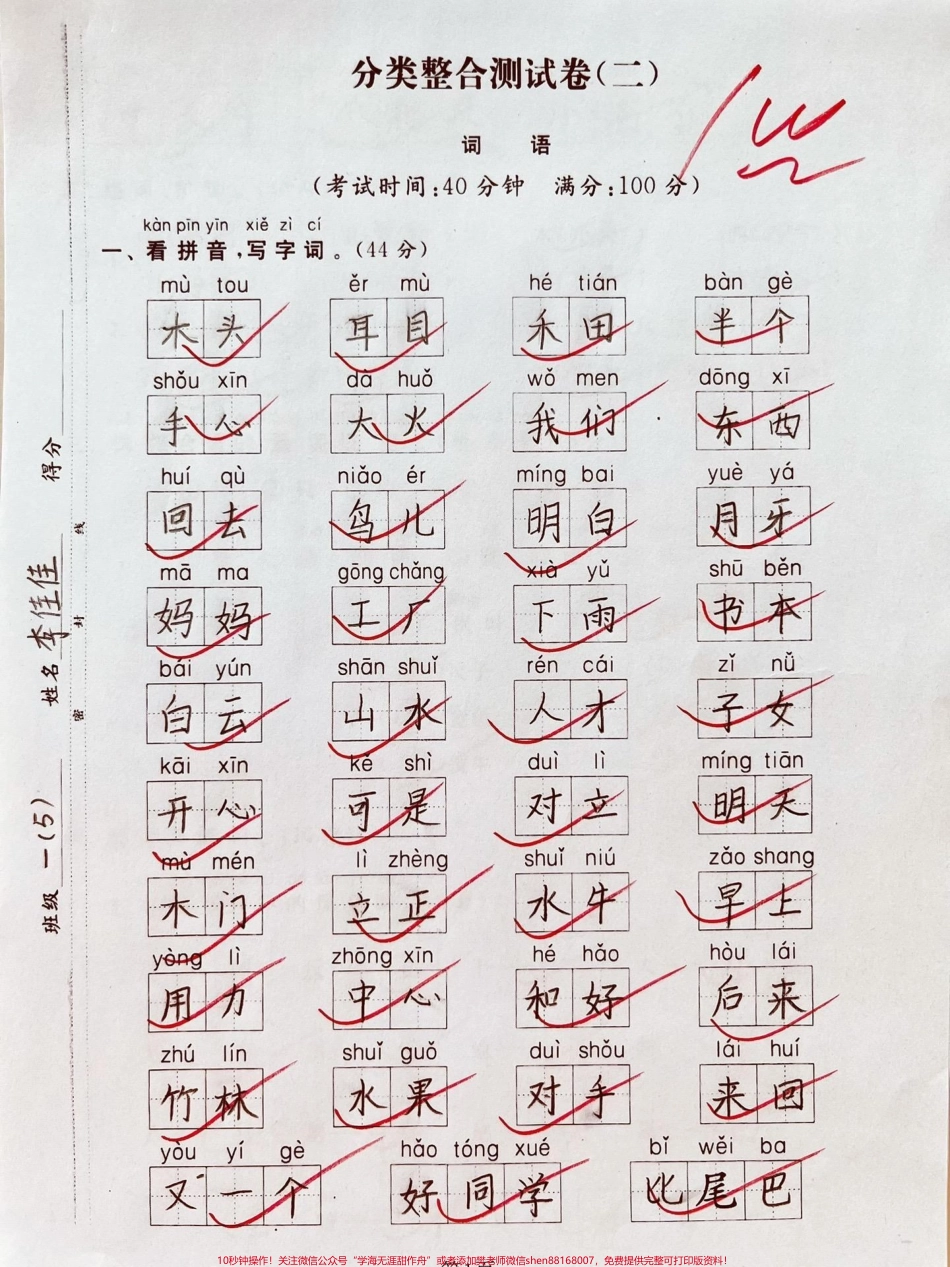 分类整合测试卷(二)
词 语
(考试时间:40分钟 满分:100分)
kàn pīn yīn xiě zì cí
一、看拼音,写字词。(44分)
mù tou ěr mù hé tián bàn gè
木头 耳目 禾田 半个
shǒu xīn dà huǒ wǒ men dōng xī
手心 大火 我们 东西
huí qù niǎo ér míng bai yuè yá
回去 鸟儿 明白 月牙
mā ma gōng chǎng xià yǔ shū běn
妈妈 工厂 下雨 书本
bái yún shān shuǐ rén cái zǐ nǚ
白云 山水 人才 子女
kāi xīn kě shì duì lì míng tiān
开心 可是 对立 明天
mù mén lì zhèng shuǐ niú zǎo shang
木门 立正 水牛 早上
yòng lì zhōng xīn hé hǎo hòu lái
用力 中心 和好 后来
zhú lín shuǐ guǒ duì shǒu lái huí
竹林 水果 对手 来回
yòu yí gè hǎo tóng xué bǐ wěi ba
又一个 好同学 比尾巴
班级 一(5) 姓名 李佳佳 得分
密 封 线
10秒钟操作!关注微信公众号“学海无涯甜作舟”或者添加樊老师微信shen88168007,免费提供完整可打印版资料!